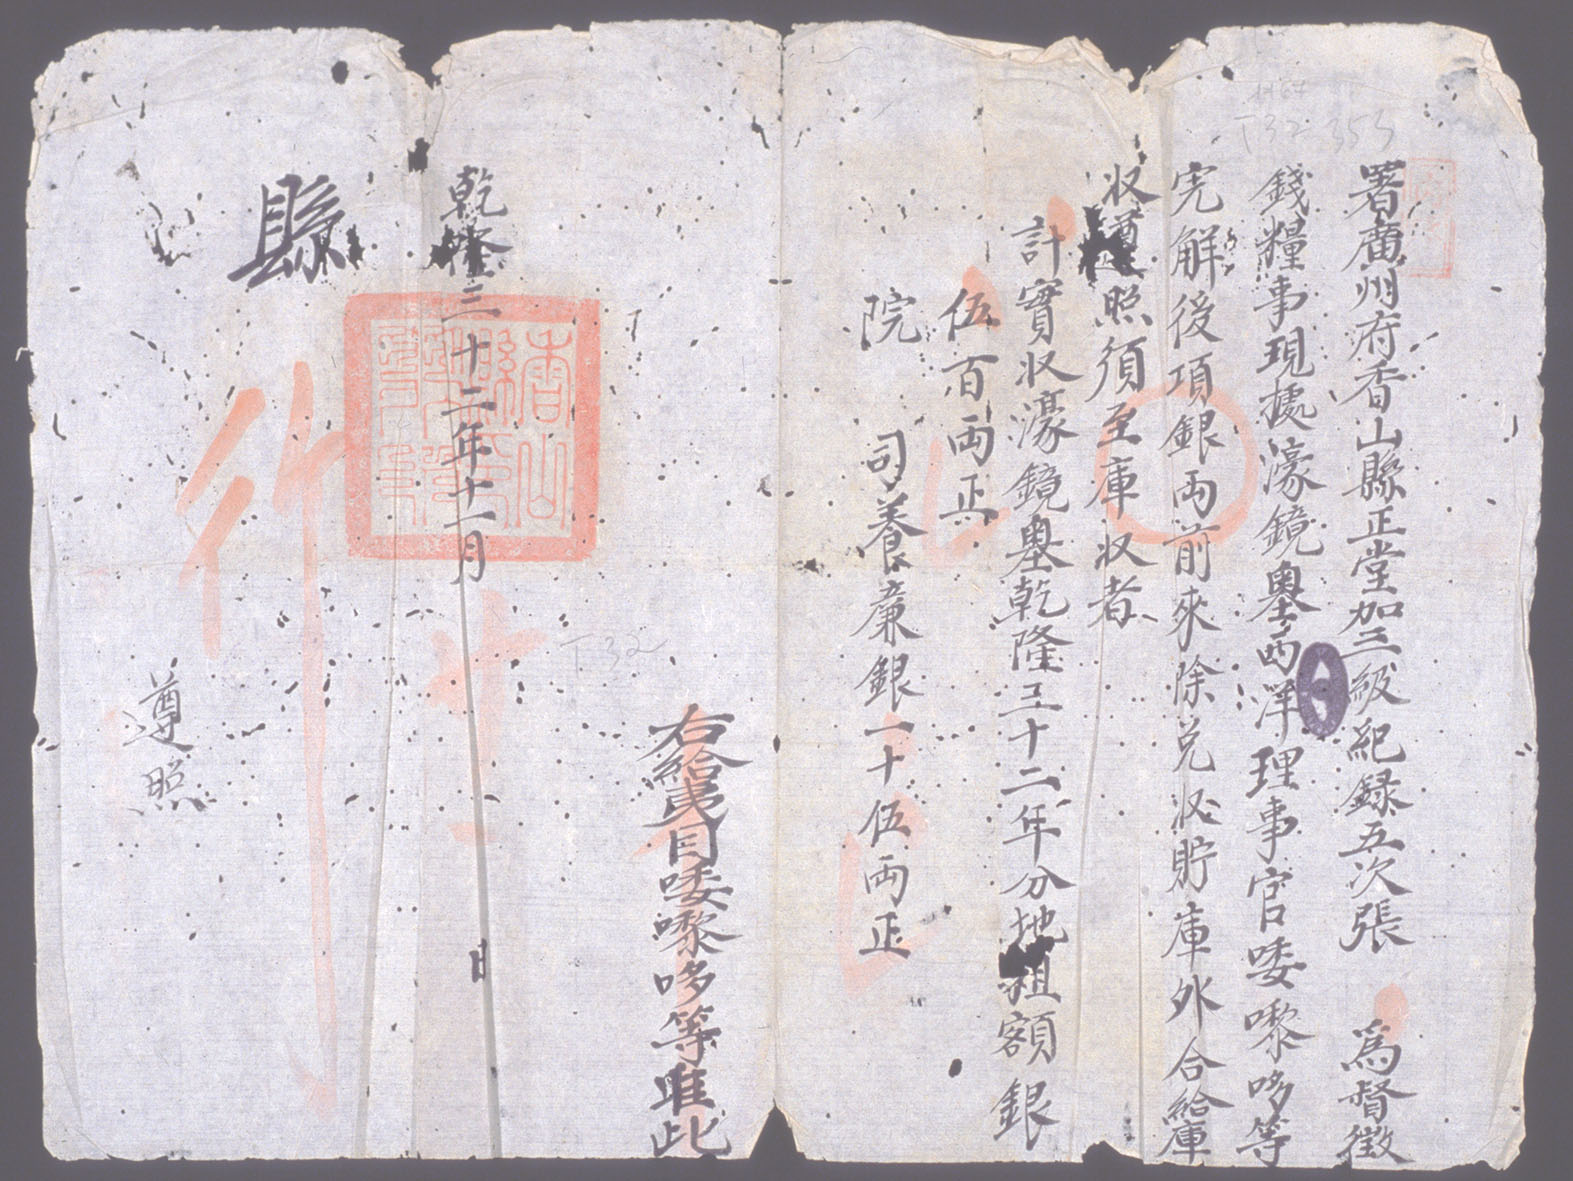 署廣州府香山縣正堂加三級紀録五次張　為督徵
錢糧事現據濠鏡墺西洋理事官唩嚟哆等
完解後項銀両前來除兑收貯庫外合給庫
收遵照須至庫收者
計實收濠鏡墺乾隆三十二年分地租額銀
伍百両正
院　司養廉銀一十伍両正
右給夷目唩嚟哆等准此
乾隆三十二年十一月　日
縣　行
遵照
香山縣印
T.32
1167
T32 355